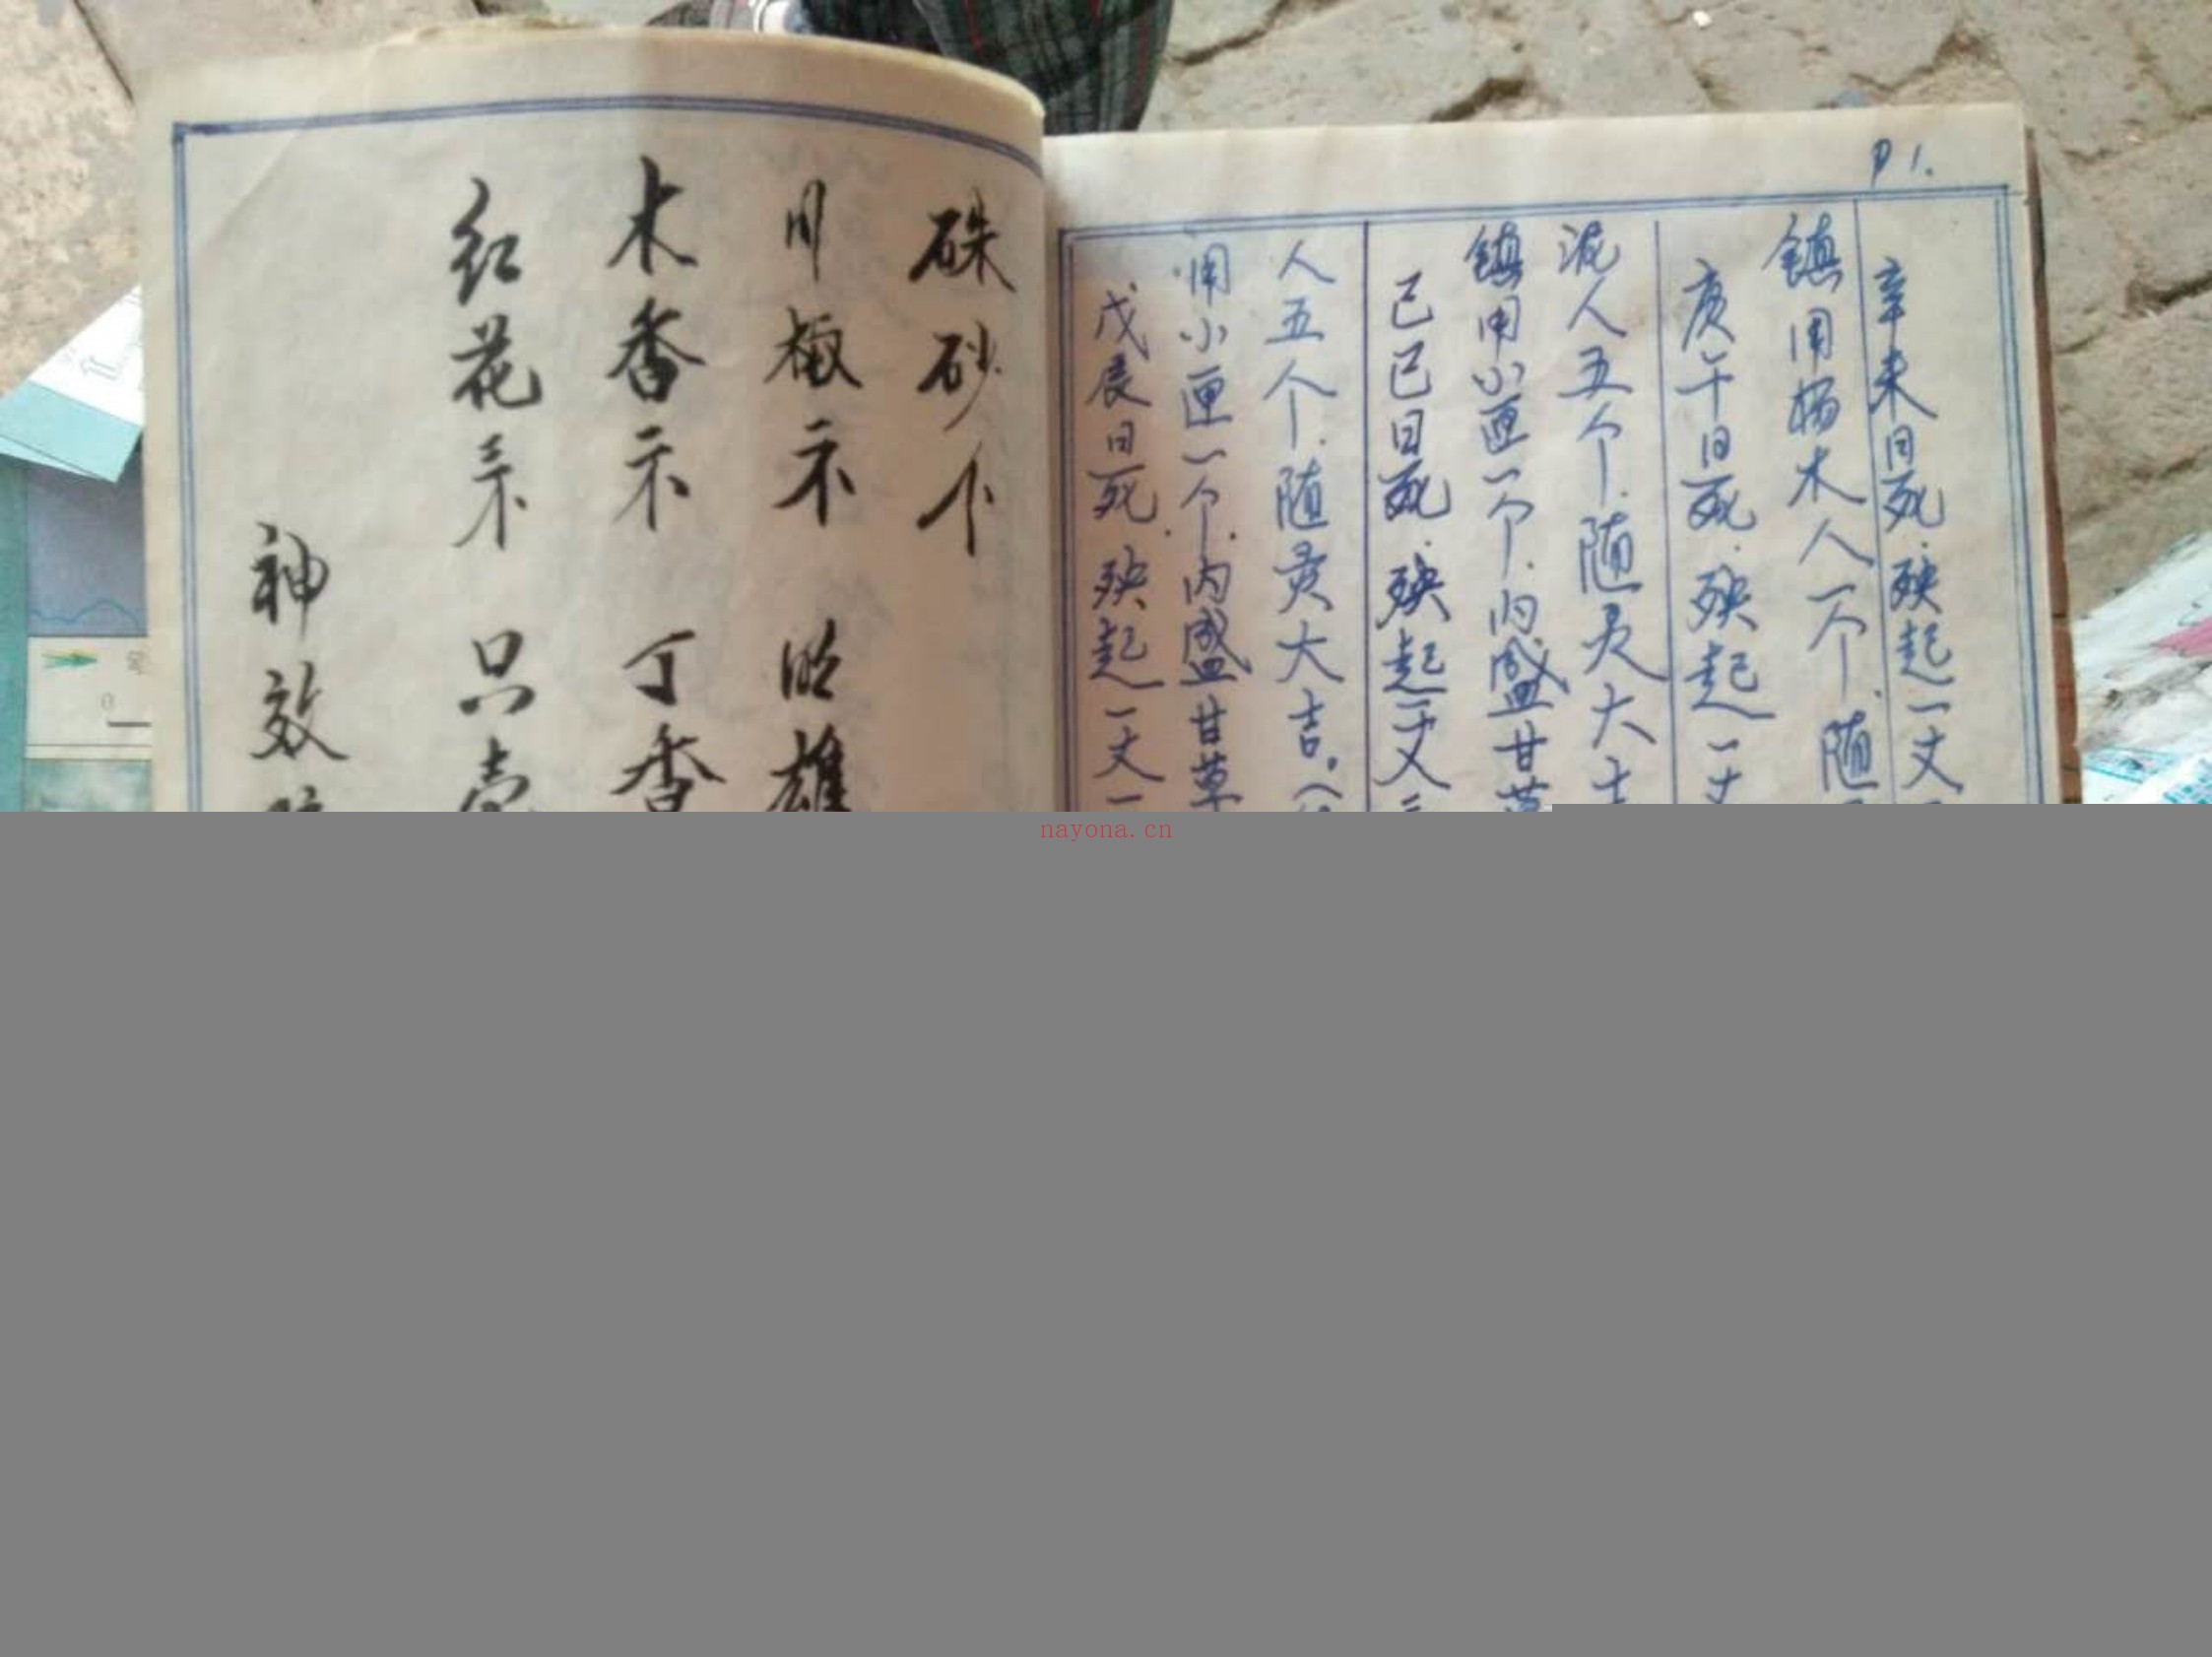 P1.
辛未日死.殃起一丈
镇用杨木人一个.随
庚午日死.殃起一丈
泥人五个.随灵大吉
镇用小匣一个.内盛甘草
己巳日死.殃起一丈三
人五个.随灵大吉。
用小匣一个.内盛甘草
戊辰日死.殃起一丈一
硃砂个
川椒 雄
木香 丁香
红花 只壳
神效
nayona.cn